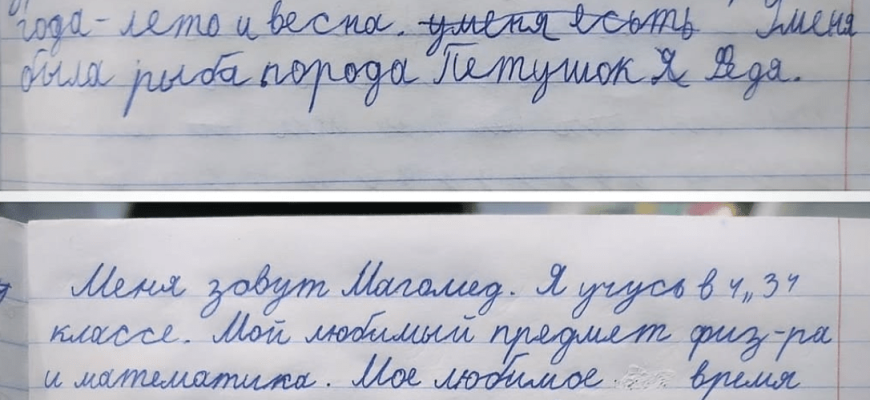 года - лето и весна. у меня есть Уменя
была рыба порода Петушок Я Ядя.
Меня зовут Магомед. Я учусь в 4 „З"
классе. Мой любимый предмет физ-ра
и математика. Мое любимое время